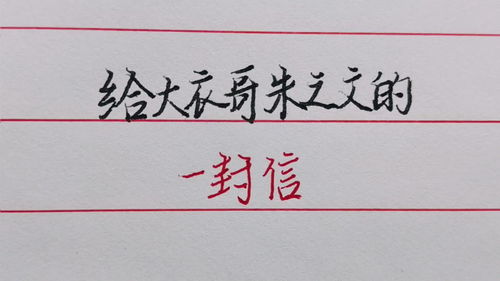 给大衣哥朱之文的
一封信